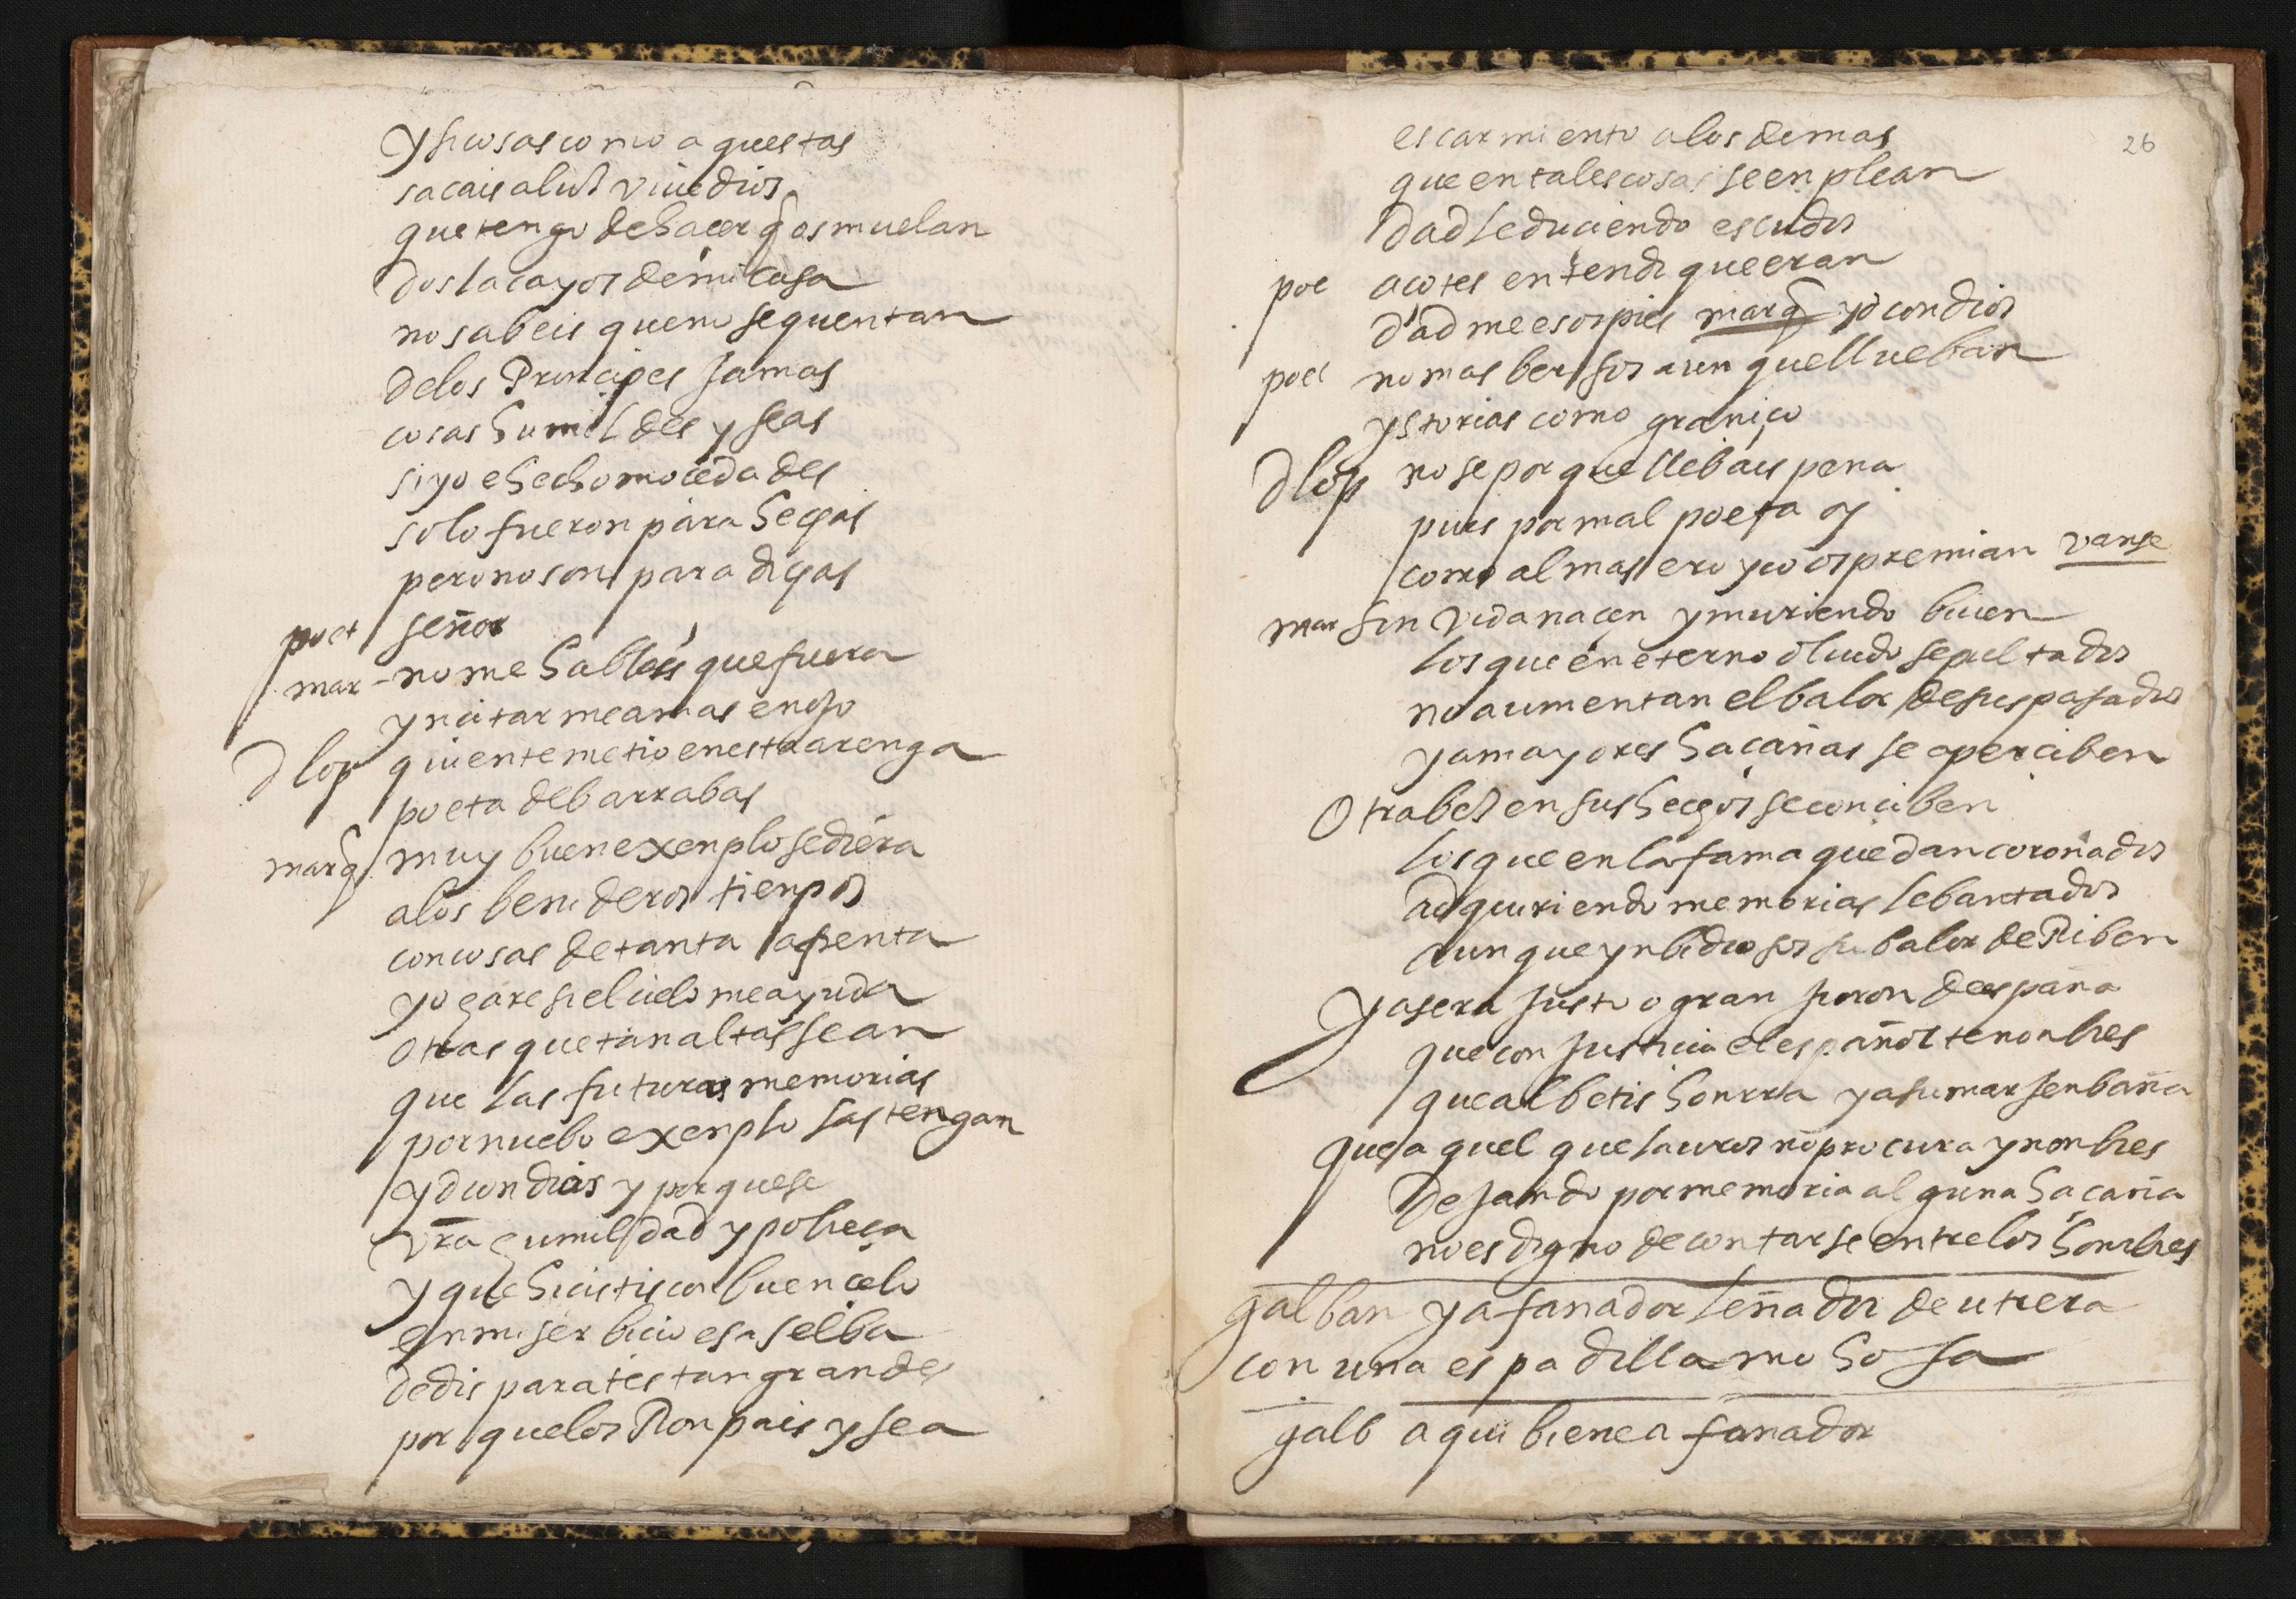 y si cosas como aquestas
sacais a luz vive dios
que tengo de hacer q̃ os muelan
dos lacayos de mi casa
no sabeis que no se quentan
de los Principes jamas
cosas humildes y feas
si yo e hecho mocedades
solo fueron para hechas
pero no son para dichas
poet señor
mar - no me hableis que fuera
yncitarme a mas enojo
d lop quien te metio en esta arenga
poeta de barrabas
marq̃ muy buen exenplo se diera
a los benideros tienpos
con cosas de tanta afrenta
yo hare si el cielo me ayuda
otras que tan altas sean
que las futuras memorias
por nuebo exenplo las tengan
yd con dios y porque se
vr̃a humildad y pobreça
y que hicistis con buen çelo
en mi serbicio esa selba
de disparates tan grandes
porque los Ronpais y sea
26
escarmiento a los demas
que en tales cosas se enplean
dadle ducientos escudos
poe açotes entendi que eran
dadme esos pies marq̃ yd con dios
poet no mas bersos aunque llueban
ystorias como graniço
d lop no se por que llebais pena
pues por mal poeta oj
como al mas eroyco os premian vanse
mar sin vida naçen y muriendo biuen
los que en eterno oluido sepultados
no aumentan el balor de sus pasados
y a mayores haçañas se aperciben
Otra bez en sus hechos se conciben
los que en la fama quedan coronados
adquiriendo memorias lebantados
aunque ynbidiosos su balor deRiben
Ya sera justo o gran jiron de españa
que con justicia el español te nonbres
que al betis honrra y a su mar senbaña
que aquel que lauros no procura y nonbres
dejando por memoria alguna haçaña
no es digno de contarse entre los honbres
galban y afanador leñador de utrera
con una espadilla mohosa
galb aqui biene afanador